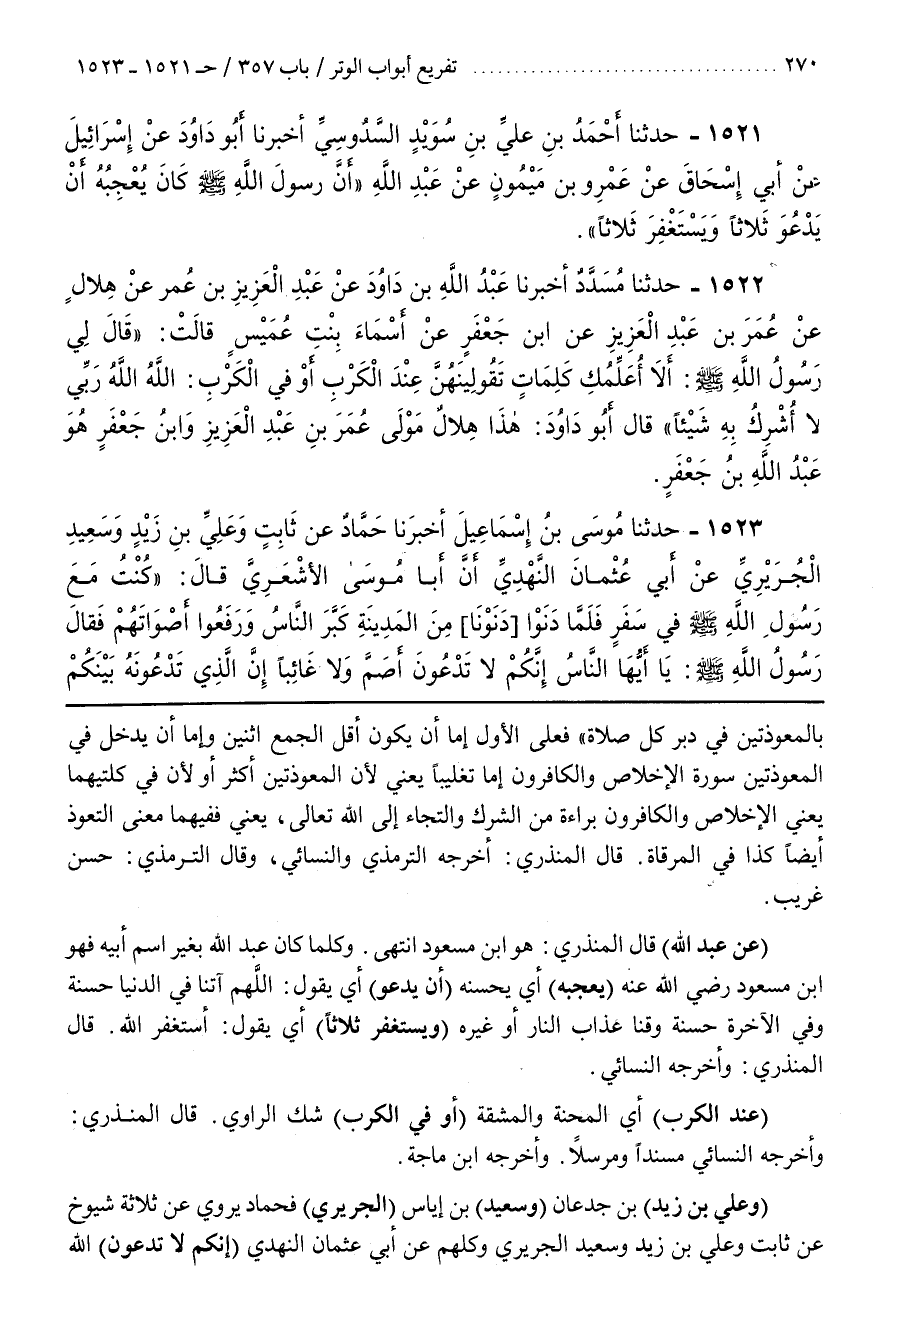 ٢٧٠ ..................................... تفريع أبواب الوتر / باب ٣٥٧ / حـ ١٥٢١ ـ ١٥٢٣
١٥٢١ ـ حدثنا أَحْمَدُ بنِ عليِّ بنِ سُوَيْدٍ السَّدُوسِيِّ أخبرنا أَبُو دَاوُدَ عنْ إِسْرَائِيلَ
عنْ أبي إِسْحَاقَ عنْ عَمْرِو بن مَيْمُونٍ عنْ عَبْدِ اللَّهِ «أَنَّ رسولَ اللَّهِ ﷺ كَانَ يُعْجِبُهُ أَنْ
يَدْعُوَ ثَلاثاً وَيَسْتَغْفِرَ ثَلاثاً».
١٥٢٢ ـ حدثنا مُسَدَّدٌ أخبرنا عَبْدُ اللَّهِ بن دَاوُدَ عنْ عَبْدِ الْعَزِيزِ بن عُمر عنْ هِلالٍ
عنْ عُمَرَ بن عَبْدِ الْعَزِيزِ عن ابن جَعْفَرٍ عنْ أَسْمَاءَ بِنْتِ عُمَيْسٍ قالَتْ: «قَالَ لِي
رَسُولُ اللَّهِ ﷺ: أَلَا أُعَلِّمُكِ كَلِمَاتٍ تَقُولِينَهُنَّ عِنْدَ الْكَرْبِ أَوْ في الْكَرْبِ: اللَّهُ اللَّهُ رَبِّي
لا أُشْرِكُ بِهِ شَيْئاً» قال أَبُو دَاوُدَ: هٰذَا هِلالٌ مَوْلَى عُمَرَ بنِ عَبْدِ الْعَزِيزِ وَابنُ جَعْفَرٍ هُوَ
عَبْدُ اللَّهِ بنُ جَعْفَرٍ.
١٥٢٣ ـ حدثنا مُوسَى بنُ إِسْمَاعِيلَ أخبرَنا حَمَّادٌ عن ثَابِتٍ وَعَلِيِّ بنِ زَيْدٍ وَسَعِيدٍ
الْجُرَيْرِيِّ عنْ أبي عُثْمانَ النَّهْدِيِّ أَنَّ أبا مُوسَىٰ الأَشْعَرِيَّ قالَ: «كُنْتُ مَعَ
رَسُولِ اللَّهِ ﷺ في سَفَرٍ فَلَمَّا دَنَوْا [دَنَوْنَا] مِنَ المَدِينَةِ كَبَّرَ النَّاسُ وَرَفَعُوا أَصْوَاتَهُمْ فَقالَ
رَسُولُ اللَّهِ ﷺ: يَا أَيُّهَا النَّاسُ إِنَّكُمْ لا تَدْعُونَ أَصَمَّ وَلا غَائِباً إِنَّ الَّذِي تَدْعُونَهُ بَيْنَكُمْ
بالمعوذتين في دبر كل صلاة» فعلى الأول إما أن يكون أقل الجمع اثنين وإما أن يدخل في
المعوذتين سورة الإخلاص والكافرون إما تغليباً يعني لأن المعوذتين أكثر أو لأن في كلتيهما
يعني الإخلاص والكافرون براءة من الشرك والتجاء إلى الله تعالى، يعني ففيهما معنى التعوذ
أيضاً كذا في المرقاة. قال المنذري: أخرجه الترمذي والنسائي، وقال الترمذي: حسن
غريب.
(عن عبد الله) قال المنذري: هو ابن مسعود انتهى. وكلما كان عبد الله بغير اسم أبيه فهو
ابن مسعود رضي الله عنه (يعجبه) أي يحسنه (أن يدعو) أي يقول: اللَّهم آتنا في الدنيا حسنة
وفي الآخرة حسنة وقنا عذاب النار أو غيره (ويستغفر ثلاثاً) أي يقول: أستغفر الله. قال
المنذري: وأخرجه النسائي.
(عند الكرب) أي المحنة والمشقة (أو في الكرب) شك الراوي. قال المنذري:
وأخرجه النسائي مسنداً ومرسلًا. وأخرجه ابن ماجة.
(وعلي بن زيد) بن جدعان (وسعيد) بن إياس (الجريري) فحماد يروي عن ثلاثة شيوخ
عن ثابت وعلي بن زيد وسعيد الجريري وكلهم عن أبي عثمان النهدي (إنكم لا تدعون) الله